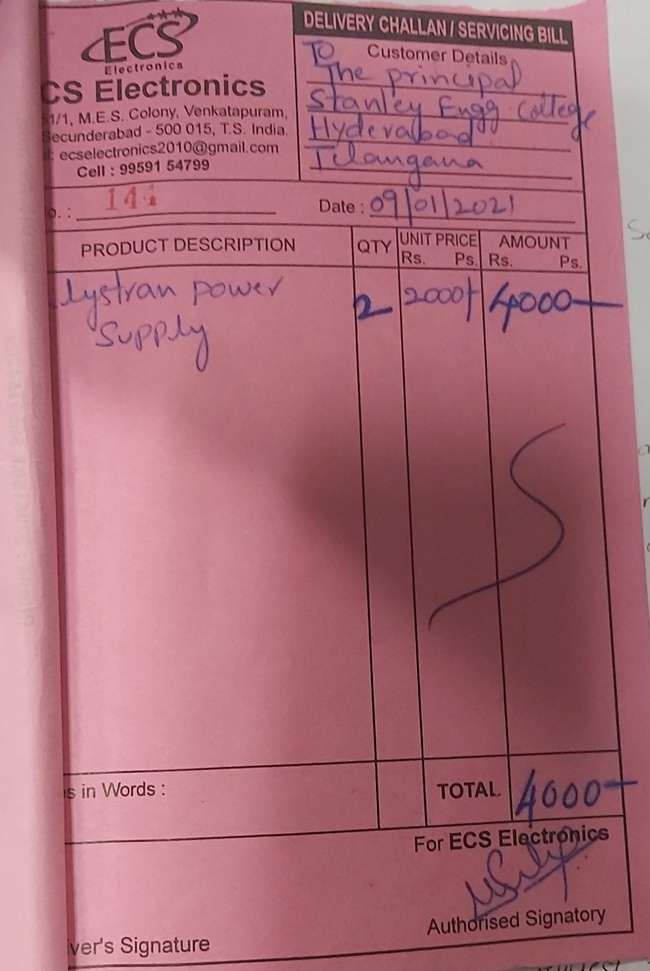 ECS
Electronics
CS Electronics
1/1, M.E.S. Colony, Venkatapuram,
Secunderabad - 500 015, T.S. India.
ecselectronics2010@gmail.com
Cell : 99591 54799
DELIVERY CHALLAN / SERVICING BILL
Customer Details
To
The principal
Stanley Engg College
Hyderabad
Tilangana
o. :
Date : 09/01/2021
PRODUCT DESCRIPTION QTY UNIT PRICE Rs. Ps. AMOUNT Rs. Ps.
power 2 2000/- 4000-
Supply
s in Words :
TOTAL 4000-
For ECS Electronics
Authorised Signatory
ver's Signature